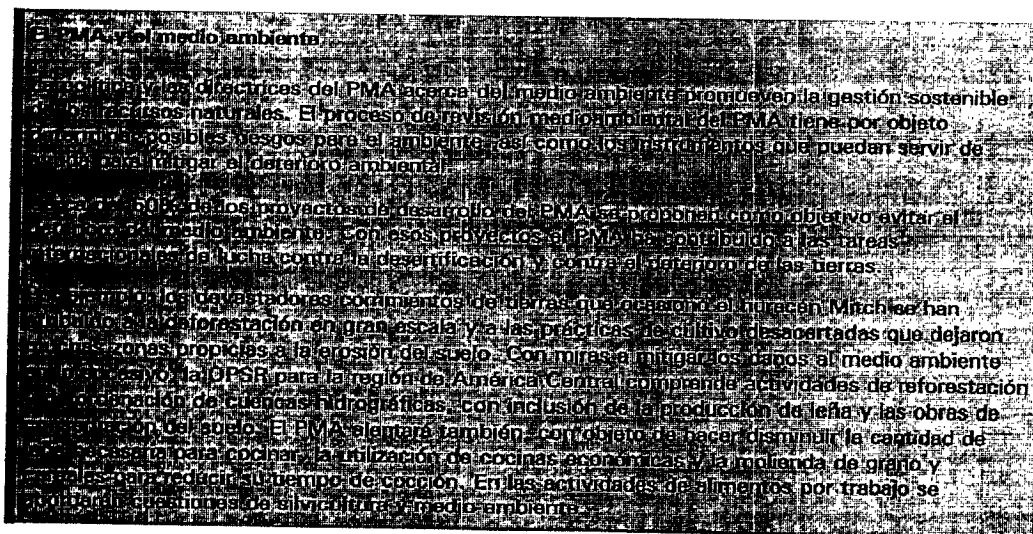 El PMA y el medio ambiente
La política y las directrices del PMA acerca del medio ambiente promueven la gestión sostenible
de los recursos naturales. El proceso de revisión medioambiental del PMA tiene por objeto
posibles riesgos para el ambiente, así como los instrumentos que puedan servir de
para mitigar el deterioro ambiental.
de los proyectos de desarrollo del PMA se proponen como objetivo evitar el
deterioro del medio ambiente. Con esos proyectos el PMA ha contribuido a las tareas
internacionales de lucha contra la desertificación y contra el deterioro de las tierras.
los devastadores corrimientos de tierras que ocasionó el huracán Mitch se han
atribuido a la deforestación en gran escala y a las prácticas de cultivo desacertadas que dejaron
zonas propicias a la erosión del suelo. Con miras a mitigar los daños al medio ambiente
la OPSR para la región de América Central comprende actividades de reforestación
ordenación de cuencas hidrográficas, con inclusión de la producción de leña y las obras de
del suelo. El PMA alentará también, con objeto de hacer disminuir la cantidad de
necesaria para cocinar, la utilización de cocinas económicas y la molienda de grano y
para reducir su tiempo de cocción. En las actividades de alimentos por trabajo se
cuestiones de silvicultura y medio ambiente.